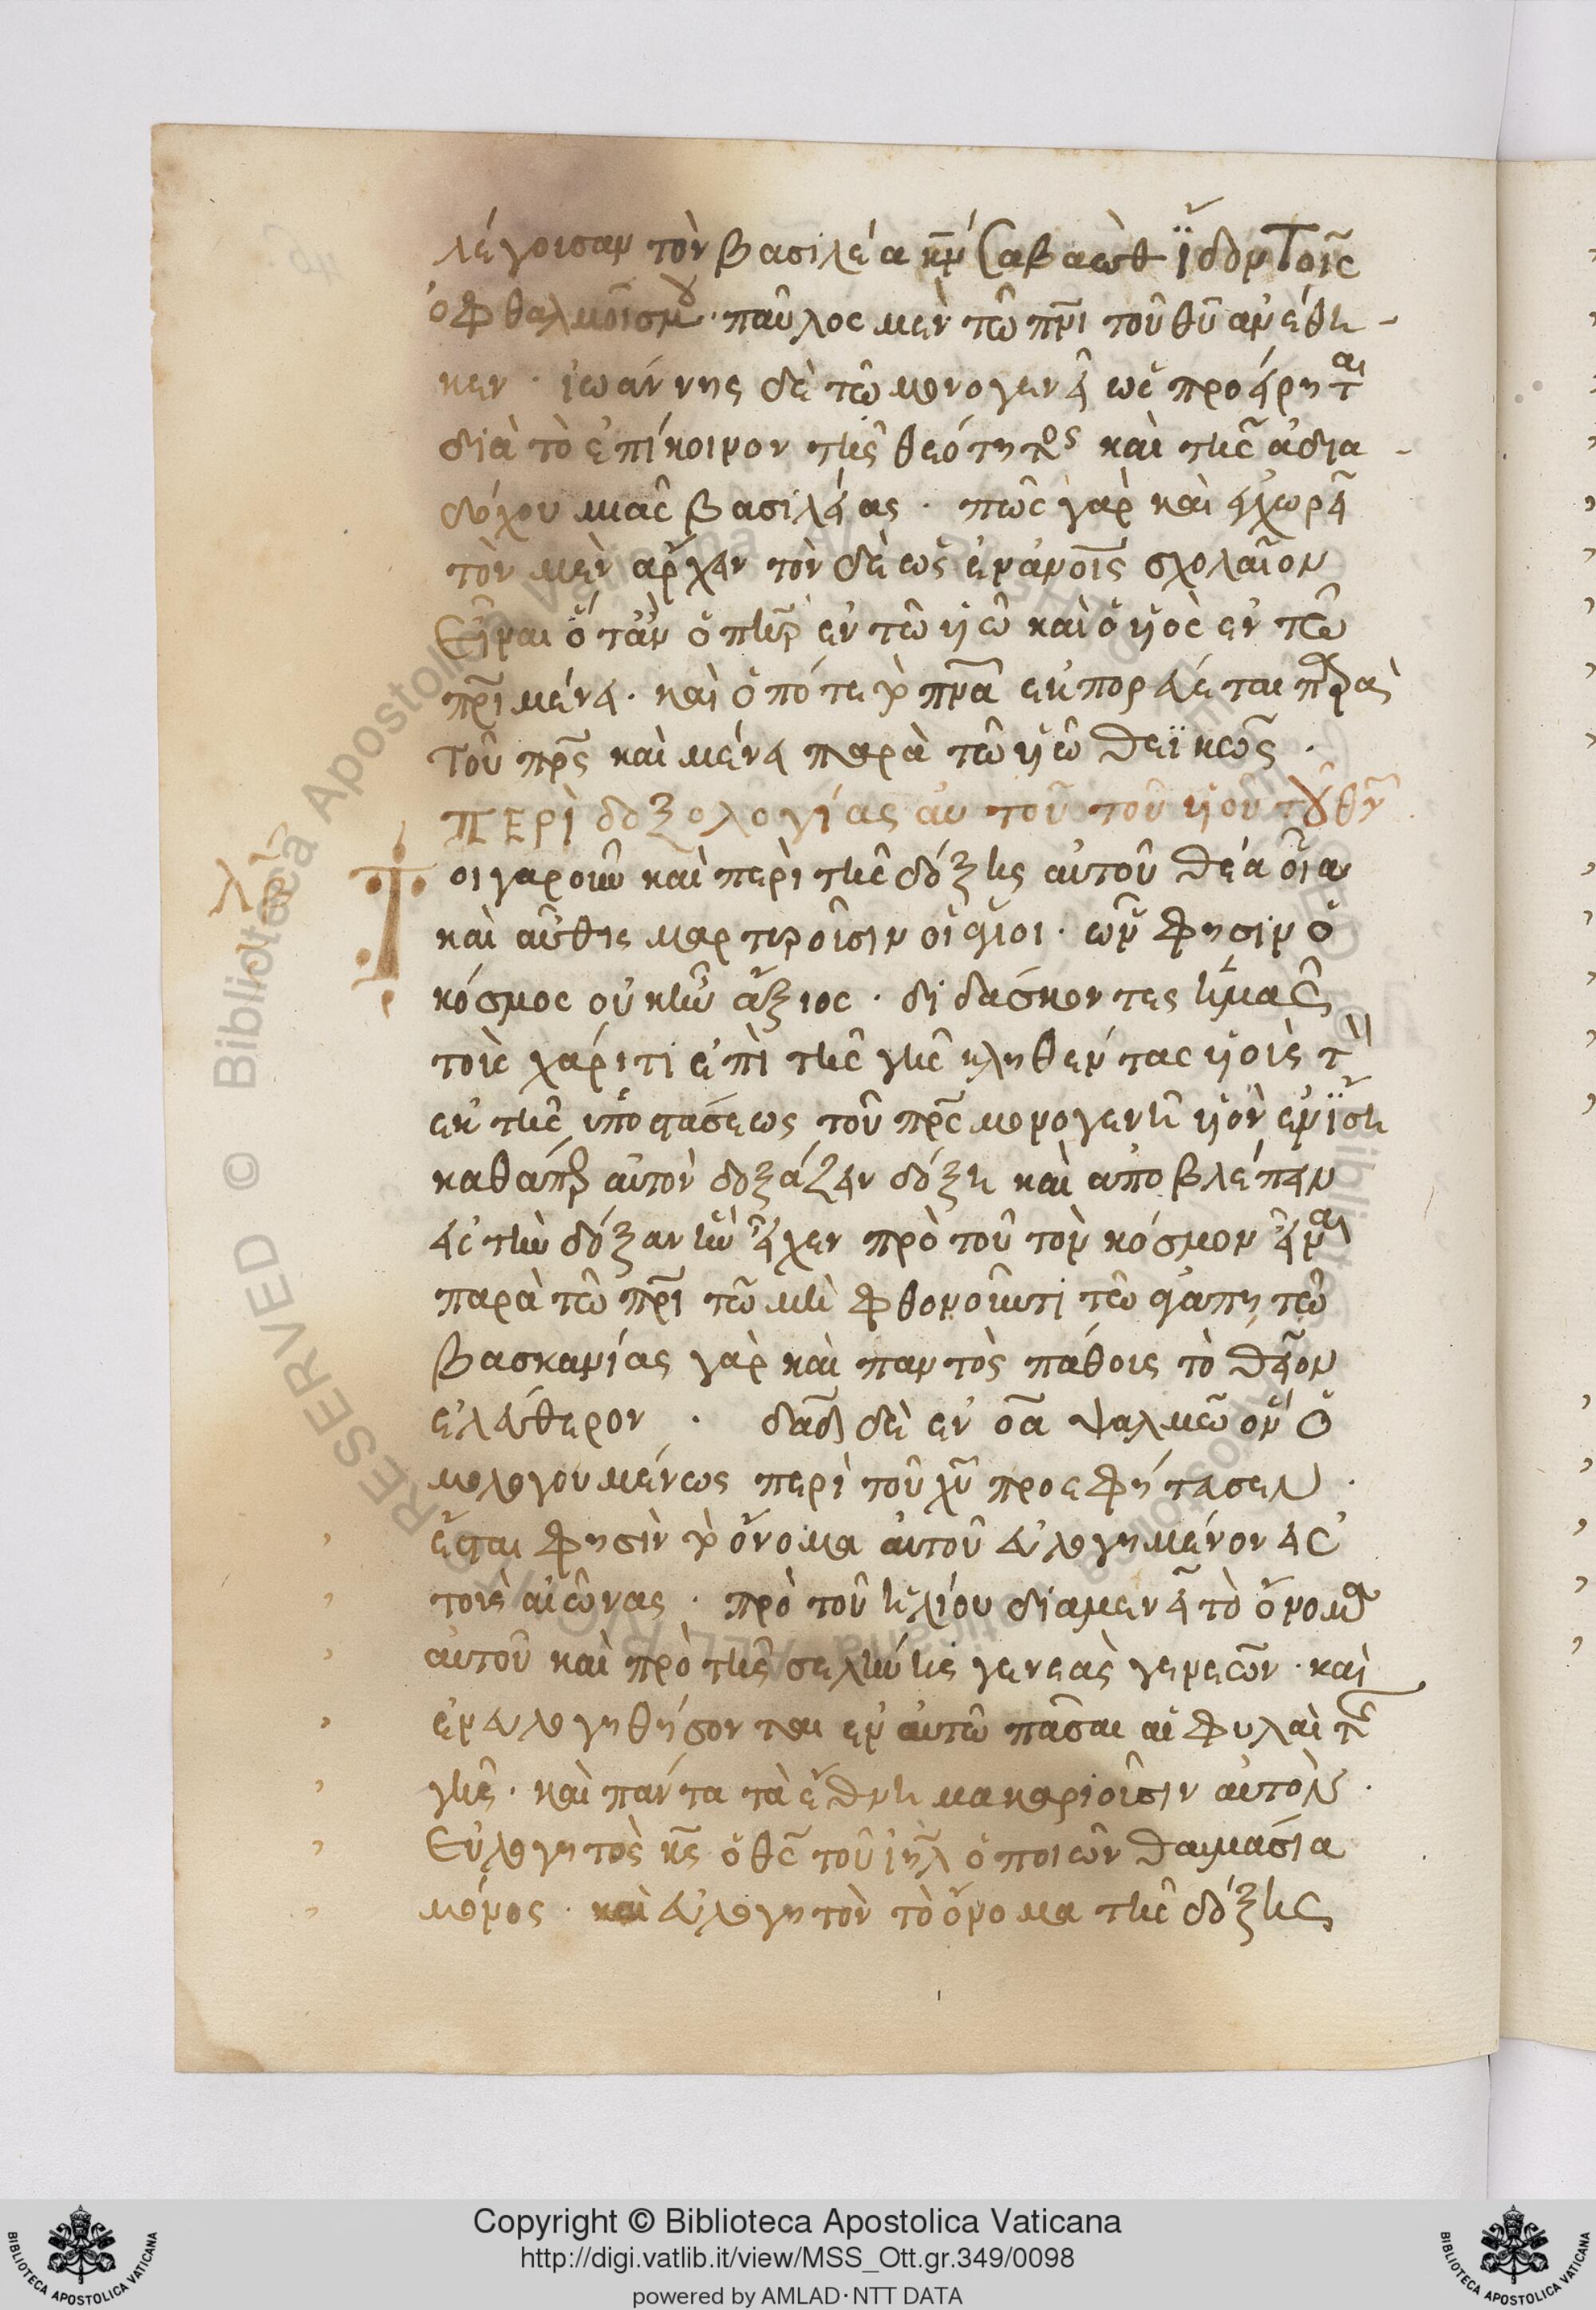 λέγουσαν τὸν βασιλέα κν̅ Σαβαὼθ ἴδον τοῖς
ὀφθαλμοῖς μου· παῦλος μὲν τῶ πρι̅ τοῦ θυ̅ ἀνέθη-
κεν· ἰωάννης δὲ τῶ μονογενεῖ ὡς προείρηται
διὰ τὸ ἐπίκοινον τῆς θεότητος καὶ τῆς ἀδια-
δόχου μιᾶς βασιλείας· πῶς γὰρ καὶ εἰχωρεῖ
τὸν μὲν ἄρχειν τὸν δὲ ὡς ἐν ἀνοις̅ σχολαῖον
εἶναι ὅταν ὁ πηρ̅ ἐν τῶ υἱῶ καὶ ὁ υἱὸς ἐν τῶ
πρι̅ μένει· καὶ ὁπότε τὸ πνα̅ ἐκπορεύεται παρὰ
τοῦ πρς̅ καὶ μένει παρὰ τῶ υἱῶ θεϊκῶς·
περὶ δοξολογίας αὐτοῦ τοῦ υἱοῦ τοῦ θυ̅
λγ
Τοιγαροῦν καὶ περὶ τῆς δόξης αὐτοῦ θέα οἷα
καὶ αὖθις μαρτυροῦσιν οἱ ἅγιοι· ὧν φησιν ὁ
κόσμος οὐκ ἦν ἄξιος· διδάσκοντες ἡμᾶς
τοὺς χάριτι ἐπὶ τῆς γῆς κληθέντας υἱοὺς τὸν
ἐκ τῆς ὑποστάσεως τοῦ πρς̅ μονογενῆ υἱὸν ἐν ἴση
καθάπερ αὐτὸν δοξάζειν δόξη καὶ ἀποβλέπειν
εἰς τὴν δόξαν ἣν εἶχεν πρὸ τοῦ τὸν κόσμον εἶναι
παρὰ τῶ πρι̅ τῶ μὴ φθονοῦντι τῶ ἀγαπητῶ
βασκανίας γὰρ καὶ παντὸς πάθους τὸ θεῖον
ἐλεύθερον· δαδ̅ δὲ ἐν οα̅ ψαλμῶ ὃν ὁ
μολογουμένως περὶ τοῦ χυ̅ προεφήτευσεν·
ἔσται φησὶν τὸ ὄνομα αὐτοῦ εὐλογημένον εἰς
τοὺς αἰῶνας· πρὸ τοῦ ἡλίου διαμενεῖ τὸ ὄνομα
αὐτοῦ καὶ πρὸ τῆς σελήνης γενεὰς γενεῶν· καὶ
ἐνευλογηθήσονται ἐν αὐτῶ πᾶσαι αἱ φυλαὶ τῆς
γῆς· καὶ πάντα τὰ ἔθνη μακαριοῦσιν αὐτόν·
Εὐλογητὸς κς̅ ὁ θς̅ τοῦ ιηλ̅ ὁ ποιῶν θαυμάσια
μόνος· καὶ εὐλογητὸν τὸ ὄνομα τῆς δόξης
RESERVED © Biblioteca Apostolica Vaticana
Copyright © Biblioteca Apostolica Vaticana
http://digi.vatlib.it/view/MSS_Ott.gr.349/0098
powered by AMLAD·NTT DATA
BIBLIOTECA APOSTOLICA VATICANA
BIBLIOTECA APOSTOLICA VATICANA